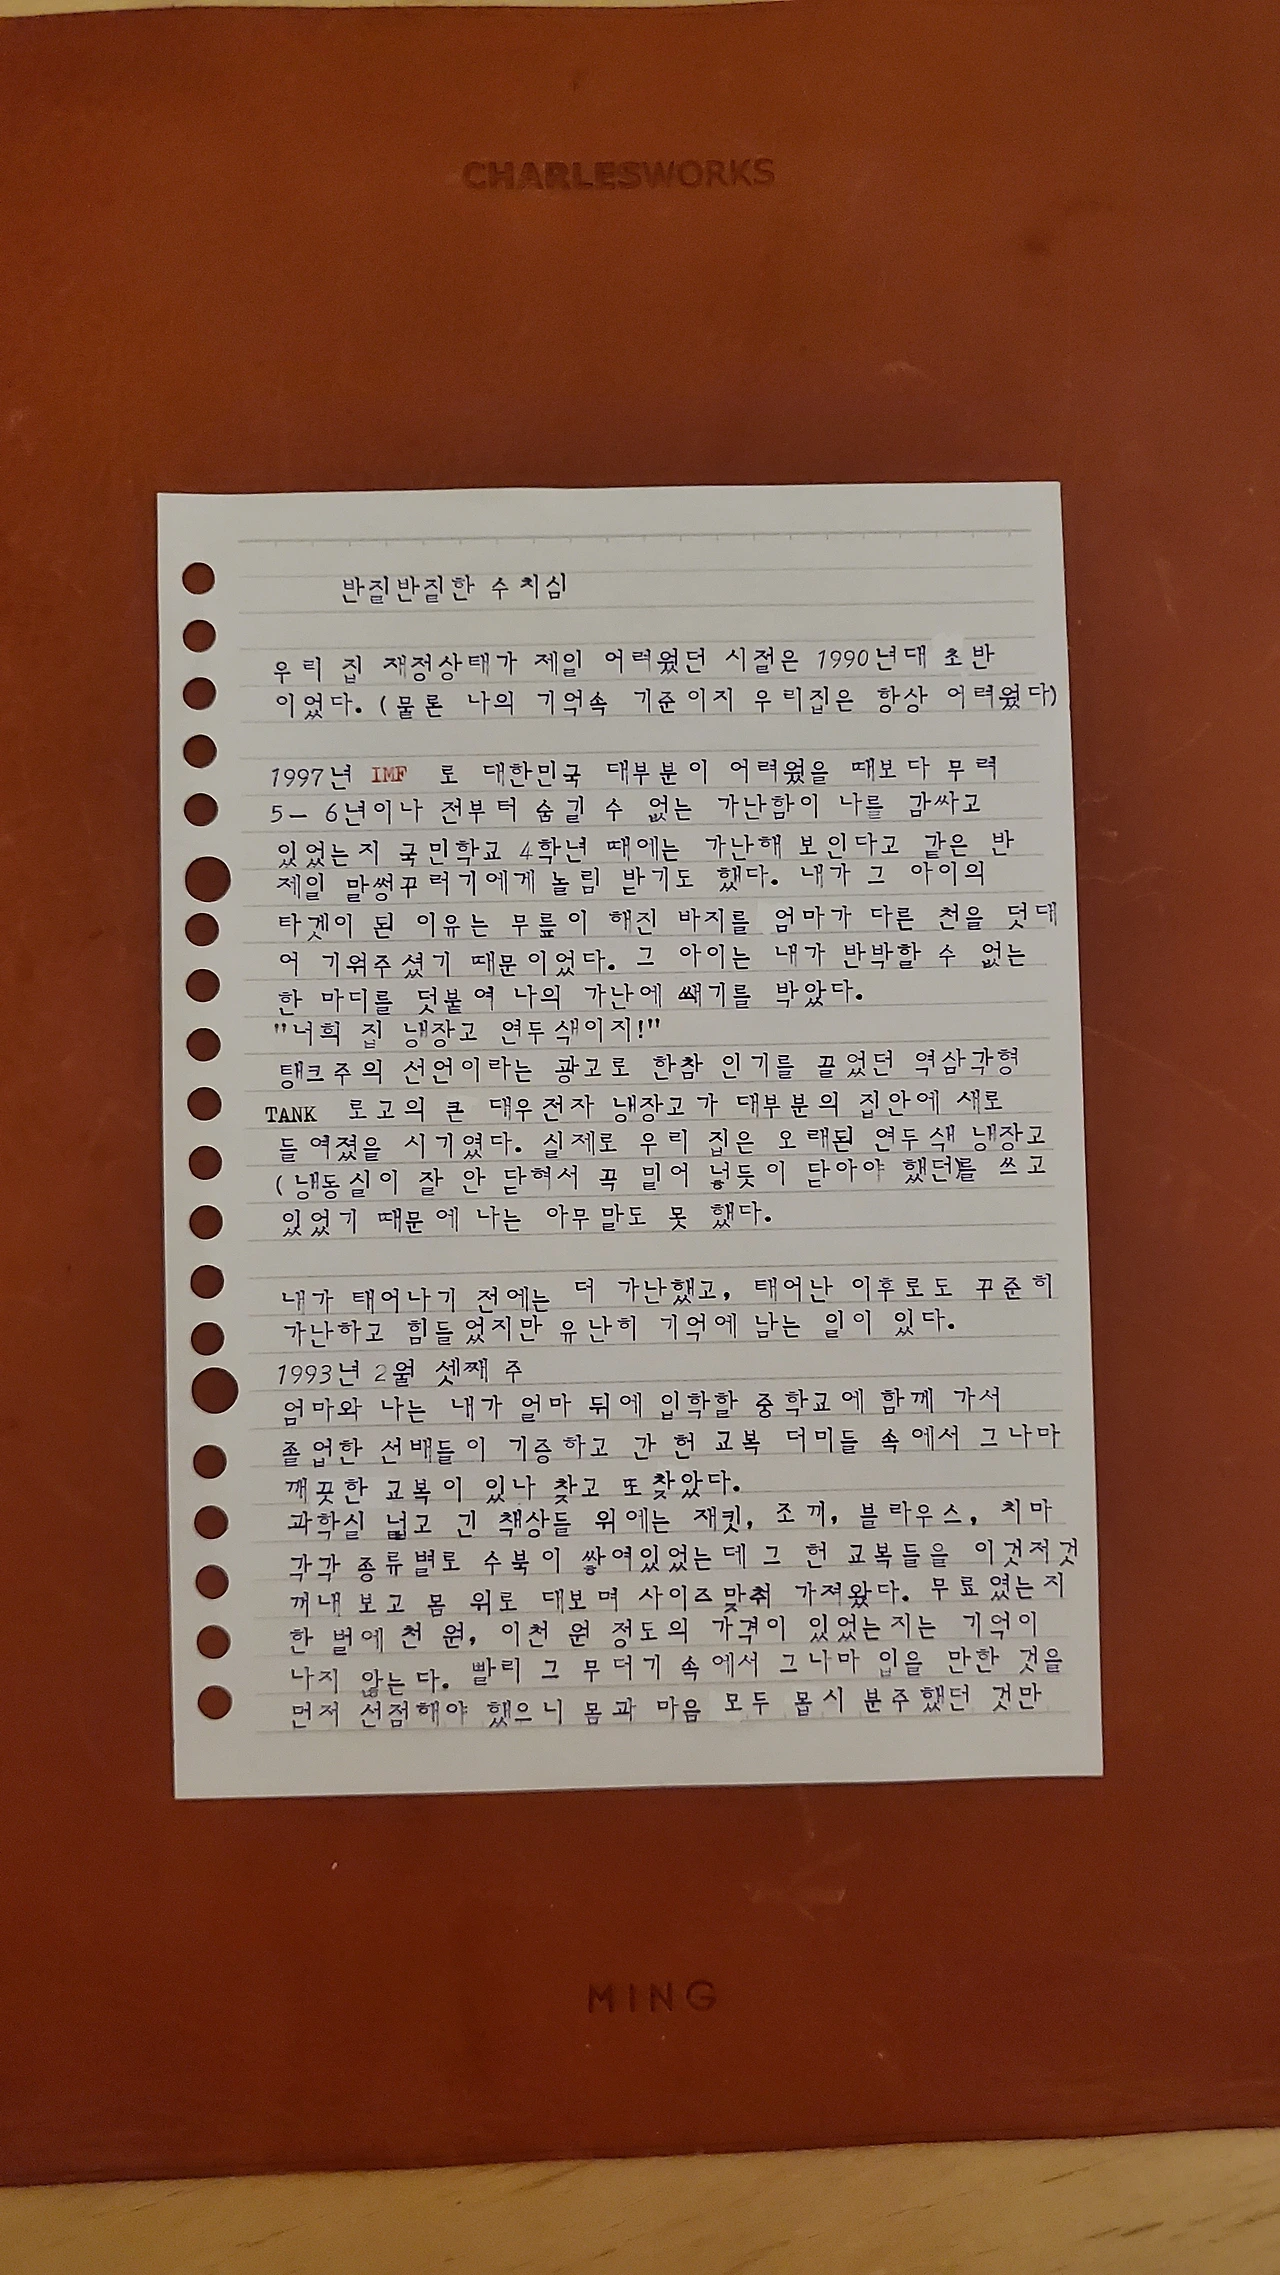 CHARLESWORKS
반질반질한 수치심
우리 집 재정상태가 제일 어려웠던 시절은 1990년대 초반
이었다. (물론 나의 기억속 기준이지 우리집은 항상 어려웠다)
1997년 IMF 로 대한민국 대부분이 어려웠을 때보다 무려
5- 6년이나 전부터 숨길 수 없는 가난함이 나를 감싸고
있었는지 국민학교 4학년 때에는 가난해 보인다고 같은 반
제일 말썽꾸러기에게 놀림 받기도 했다. 내가 그 아이의
타겟이 된 이유는 무릎이 해진 바지를 엄마가 다른 천을 덧대
어 기워주셨기 때문이었다. 그 아이는 내가 반박할 수 없는
한 마디를 덧붙여 나의 가난에 쐐기를 박았다.
"너희 집 냉장고 연두색이지!"
탱크주의 선언이라는 광고로 한참 인기를 끌었던 역삼각형
TANK 로고의 큰 대우전자 냉장고가 대부분의 집안에 새로
들여졌을 시기였다. 실제로 우리 집은 오래된 연두색 냉장고
(냉동실이 잘 안 닫혀서 꼭 밀어 넣듯이 닫아야 했던)를 쓰고
있었기 때문에 나는 아무말도 못 했다.
내가 태어나기 전에는 더 가난했고, 태어난 이후로도 꾸준히
가난하고 힘들었지만 유난히 기억에 남는 일이 있다.
1993년 2월 셋째 주
엄마와 나는 내가 얼마 뒤에 입학할 중학교에 함께 가서
졸업한 선배들이 기증하고 간 헌 교복 더미들 속에서 그나마
깨끗한 교복이 있나 찾고 또 찾았다.
과학실 넓고 긴 책상들 위에는 재킷, 조끼, 블라우스, 치마
각각 종류별로 수북이 쌓여있었는데 그 헌 교복들을 이것저것
꺼내 보고 몸 위로 대보며 사이즈 맞춰 가져왔다. 무료였는지
한 벌에 천 원, 이천 원 정도의 가격이 있었는지는 기억이
나지 않는다. 빨리 그 무더기 속에서 그나마 입을 만한 것을
먼저 선점해야 했으니 몸과 마음 모두 몹시 분주했던 것만
MING